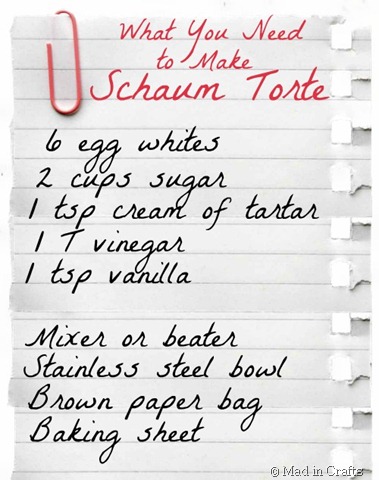 What You Need
to Make
Schaum Torte
6 egg whites
2 cups sugar
1 tsp cream of tartar
1 T vinegar
1 tsp vanilla
Mixer or beater
Stainless steel bowl
Brown paper bag
Baking sheet
© Mad in Crafts